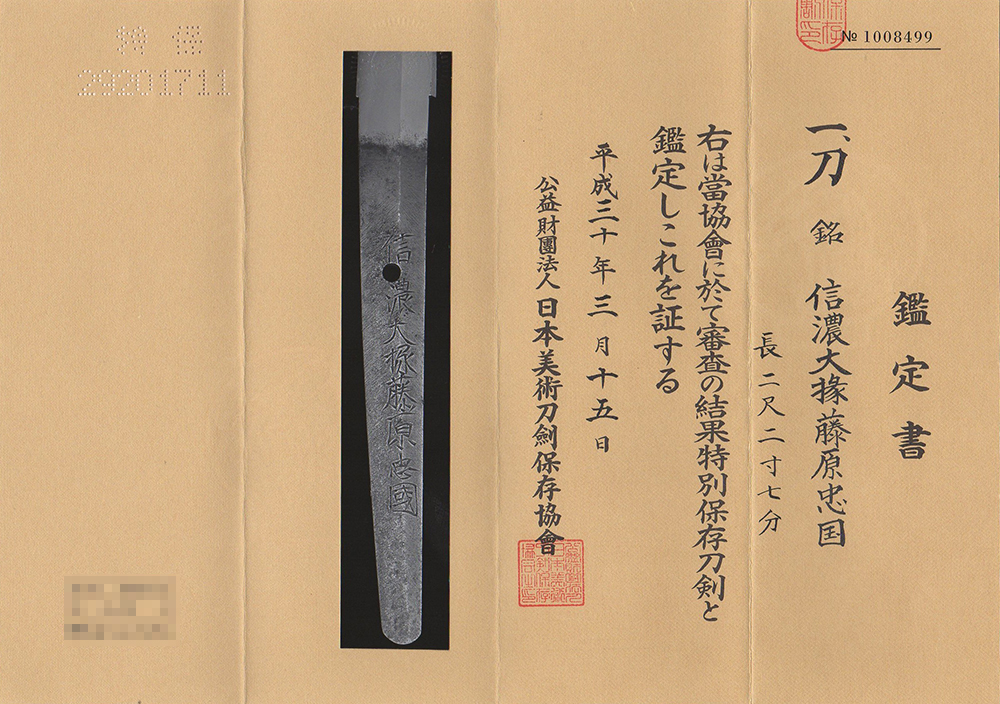 № 1008499
鑑定書
一、刀 銘 信濃大掾藤原忠国
長二尺二寸七分
右は當協會に於て審査の結果特別保存刀剣と
鑑定しこれを証する
平成三十年三月十五日
公益財團法人 日本美術刀劍保存協會
信濃大掾藤原忠國
特 保
29201711